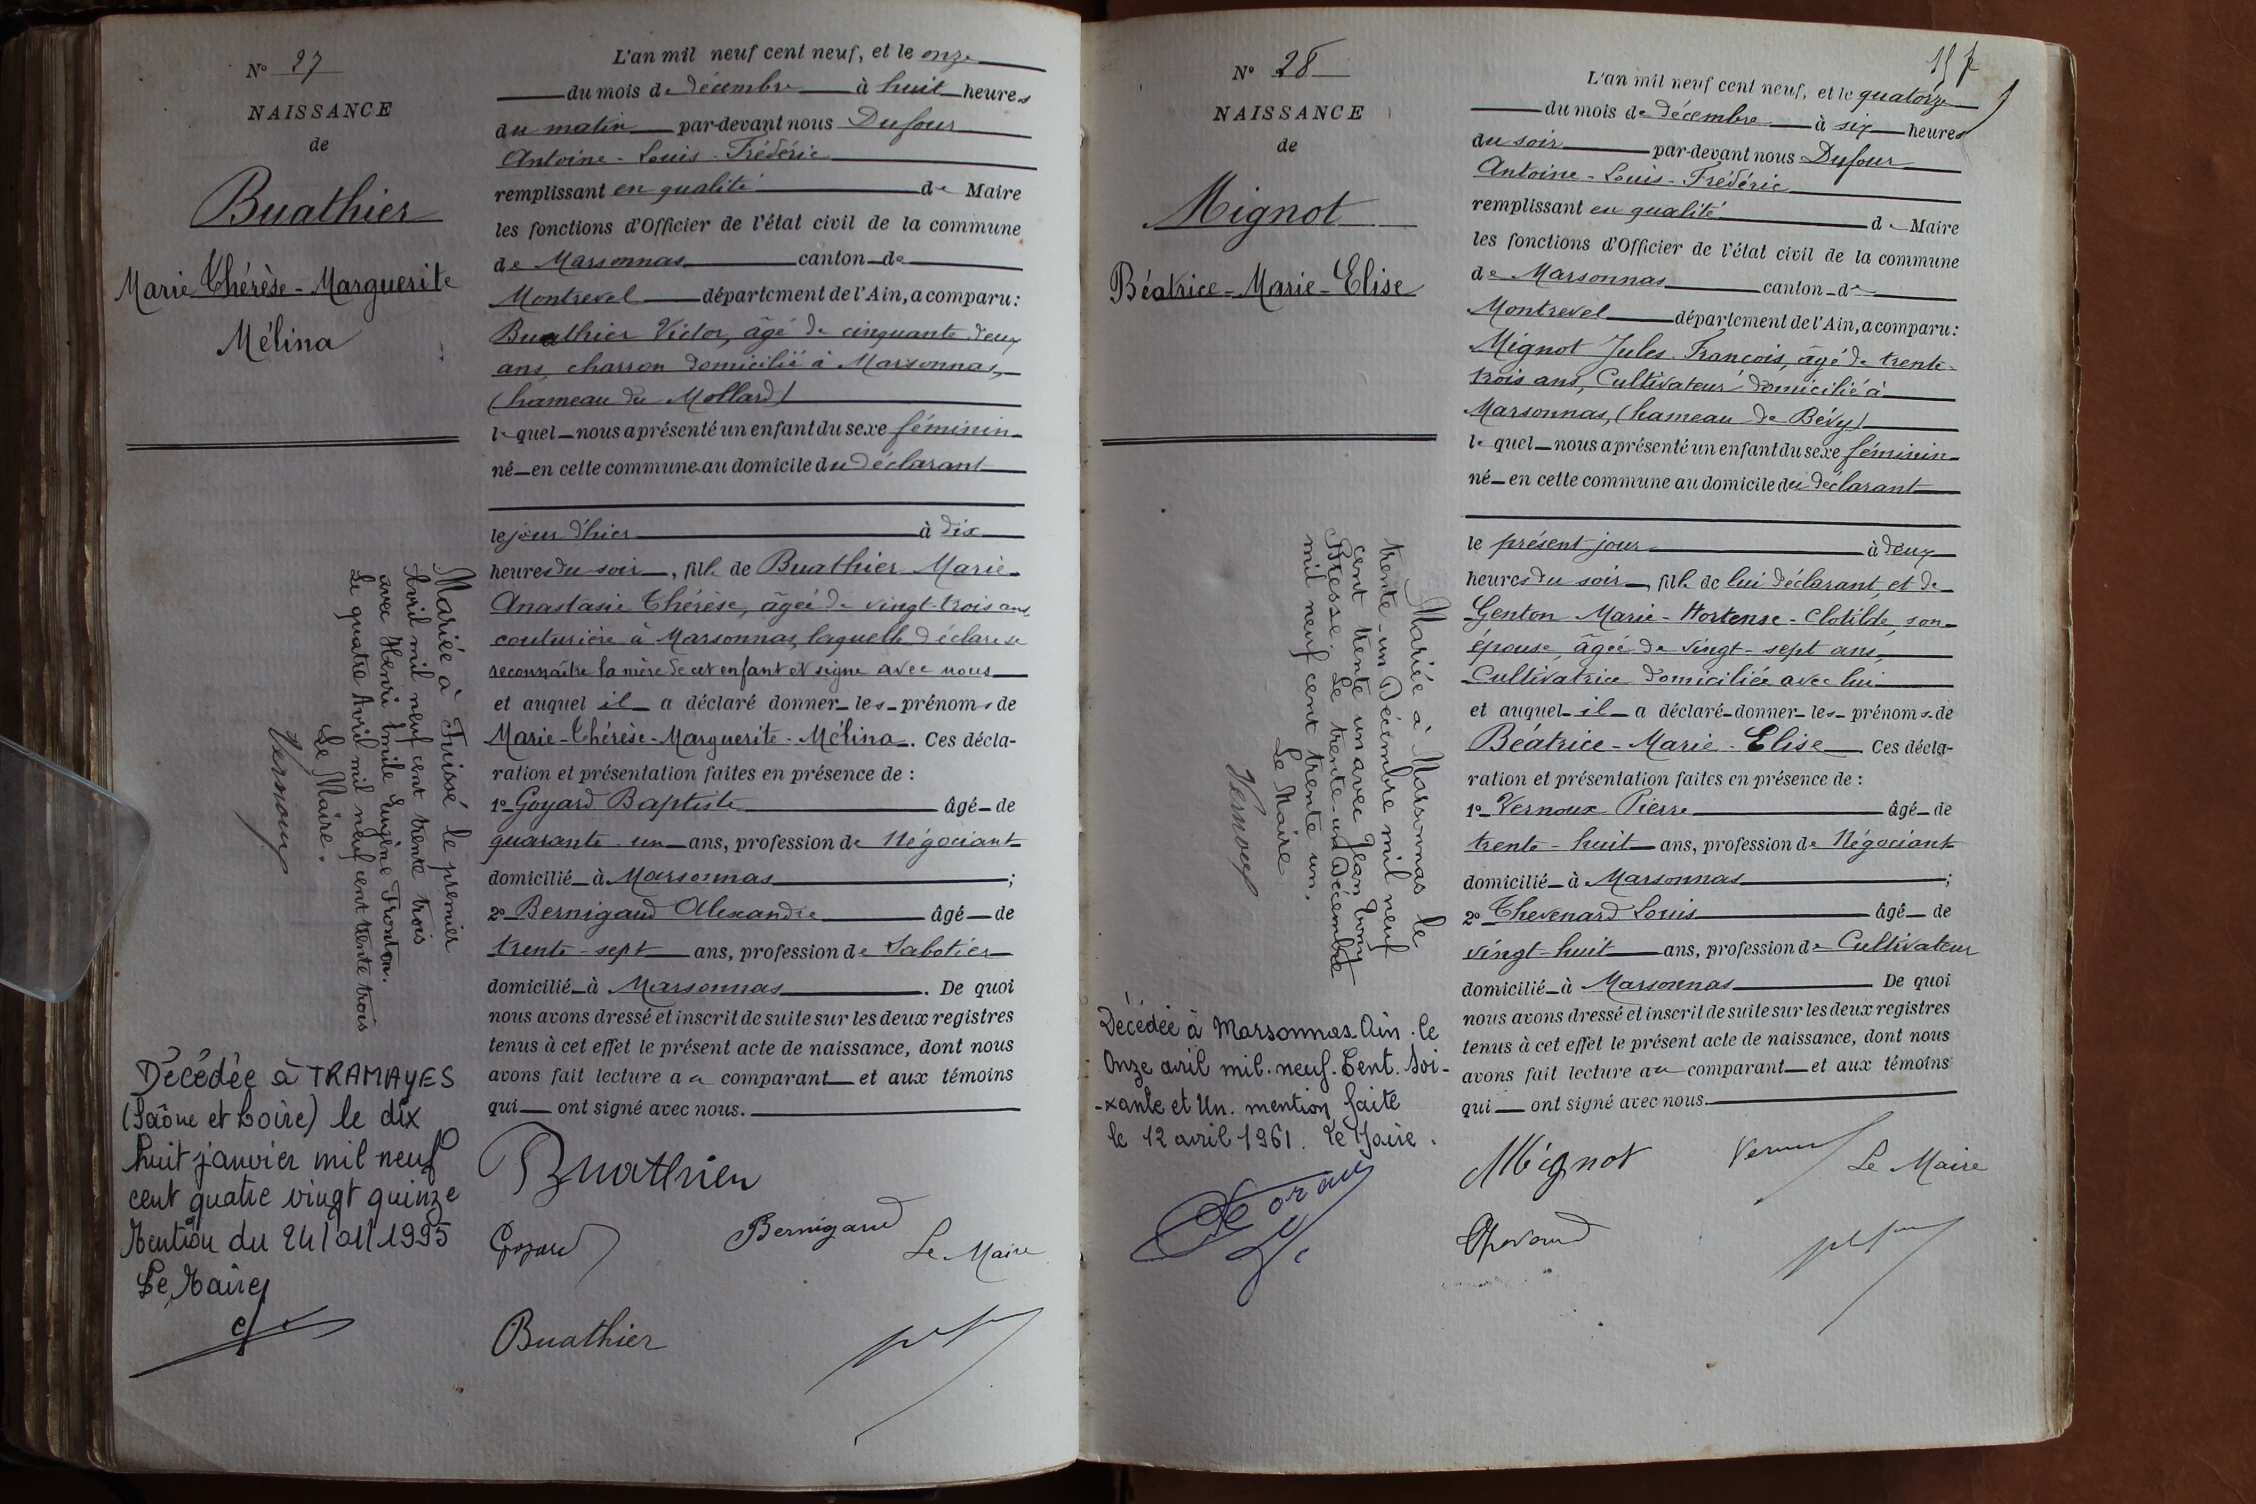 N° 27
NAISSANCE
de
Buathier
Marie Thérèse - Marguerite
Mélina
Mariée à Fuissé le premier
Avril mil neuf cent trente trois
avec Henri Emile Eugène Fronton.
Le quatre Avril mil neuf cent trente trois
Le Maire.
Vernoux
Décédée à TRAMAYES
(Saône et Loire) le dix
huit janvier mil neuf
cent quatre vingt quinze
Mention du 24/01/1995
Le Maire,
L'an mil neuf cent neuf, et le onze
du mois de décembre à huit heures
du matin par-devant nous Dufour
Antoine - Louis - Frédéric
remplissant en qualité de Maire
les fonctions d'Officier de l'état civil de la commune
de Marsonnas canton de
Montrevel département de l'Ain, a comparu :
Buathier Victor, âgé de cinquante deux
ans, charron domicilié à Marsonnas,
(hameau du Mollard)
lequel nous a présenté un enfant du sexe féminin
né en cette commune au domicile du déclarant
le jour d'hier à dix
heures du soir, fille de Buathier Marie
Anastasie Thérèse, âgée de vingt-trois ans
couturière à Marsonnas, laquelle déclare se
reconnaître la mère de cet enfant et signe avec nous
et auquel il a déclaré donner les prénoms de
Marie-Thérèse-Marguerite-Mélina. Ces décla-
ration et présentation faites en présence de :
1° Goyard Baptiste âgé de
quarante-un ans, profession de Négociant
domicilié à Marsonnas ;
2° Bernigaud Alexandre âgé de
trente-sept ans, profession de Sabotier
domicilié à Marsonnas. De quoi
nous avons dressé et inscrit de suite sur les deux registres
tenus à cet effet le présent acte de naissance, dont nous
avons fait lecture au comparant et aux témoins
qui ont signé avec nous.
Buathier
Goyard
Bernigaud
Le Maire
Buathier
157
N° 28
NAISSANCE
de
Mignot
Béatrice - Marie - Elise
Mariée à Marsonnas le
trente-un Décembre mil neuf
cent trente un avec Jean Tony
Bresse. Le trente-un Décembre
mil neuf cent trente un.
Le Maire
Vernoux
Décédée à Marsonnas Ain. le
Onze avril mil. neuf. Cent. Soi-
-xante et Un. mention faite
le 12 avril 1961. Le Maire.
L'an mil neuf cent neuf, et le quatorze
du mois de décembre à six heures
du soir par-devant nous Dufour
Antoine - Louis - Frédéric
remplissant en qualité de Maire
les fonctions d'Officier de l'état civil de la commune
de Marsonnas canton de
Montrevel département de l'Ain, a comparu :
Mignot Jules François, âgé de trente-
trois ans, Cultivateur domicilié à
Marsonnas, (hameau de Bévy)
lequel nous a présenté un enfant du sexe féminin
né en cette commune au domicile du déclarant
le présent jour à deux
heures du soir, fille de lui déclarant et de
Genton Marie - Hortense - Clotilde, son
épouse âgée de vingt-sept ans,
Cultivatrice domiciliée avec lui
et auquel il a déclaré donner les prénoms de
Béatrice - Marie - Elise. Ces décla-
ration et présentation faites en présence de :
1° Vernoux Pierre âgé de
trente-huit ans, profession de Négociant
domicilié à Marsonnas ;
2° Thevenard Louis âgé de
vingt-huit ans, profession de Cultivateur
domicilié à Marsonnas De quoi
nous avons dressé et inscrit de suite sur les deux registres
tenus à cet effet le présent acte de naissance, dont nous
avons fait lecture au comparant et aux témoins
qui ont signé avec nous.
Mignot
Le Maire